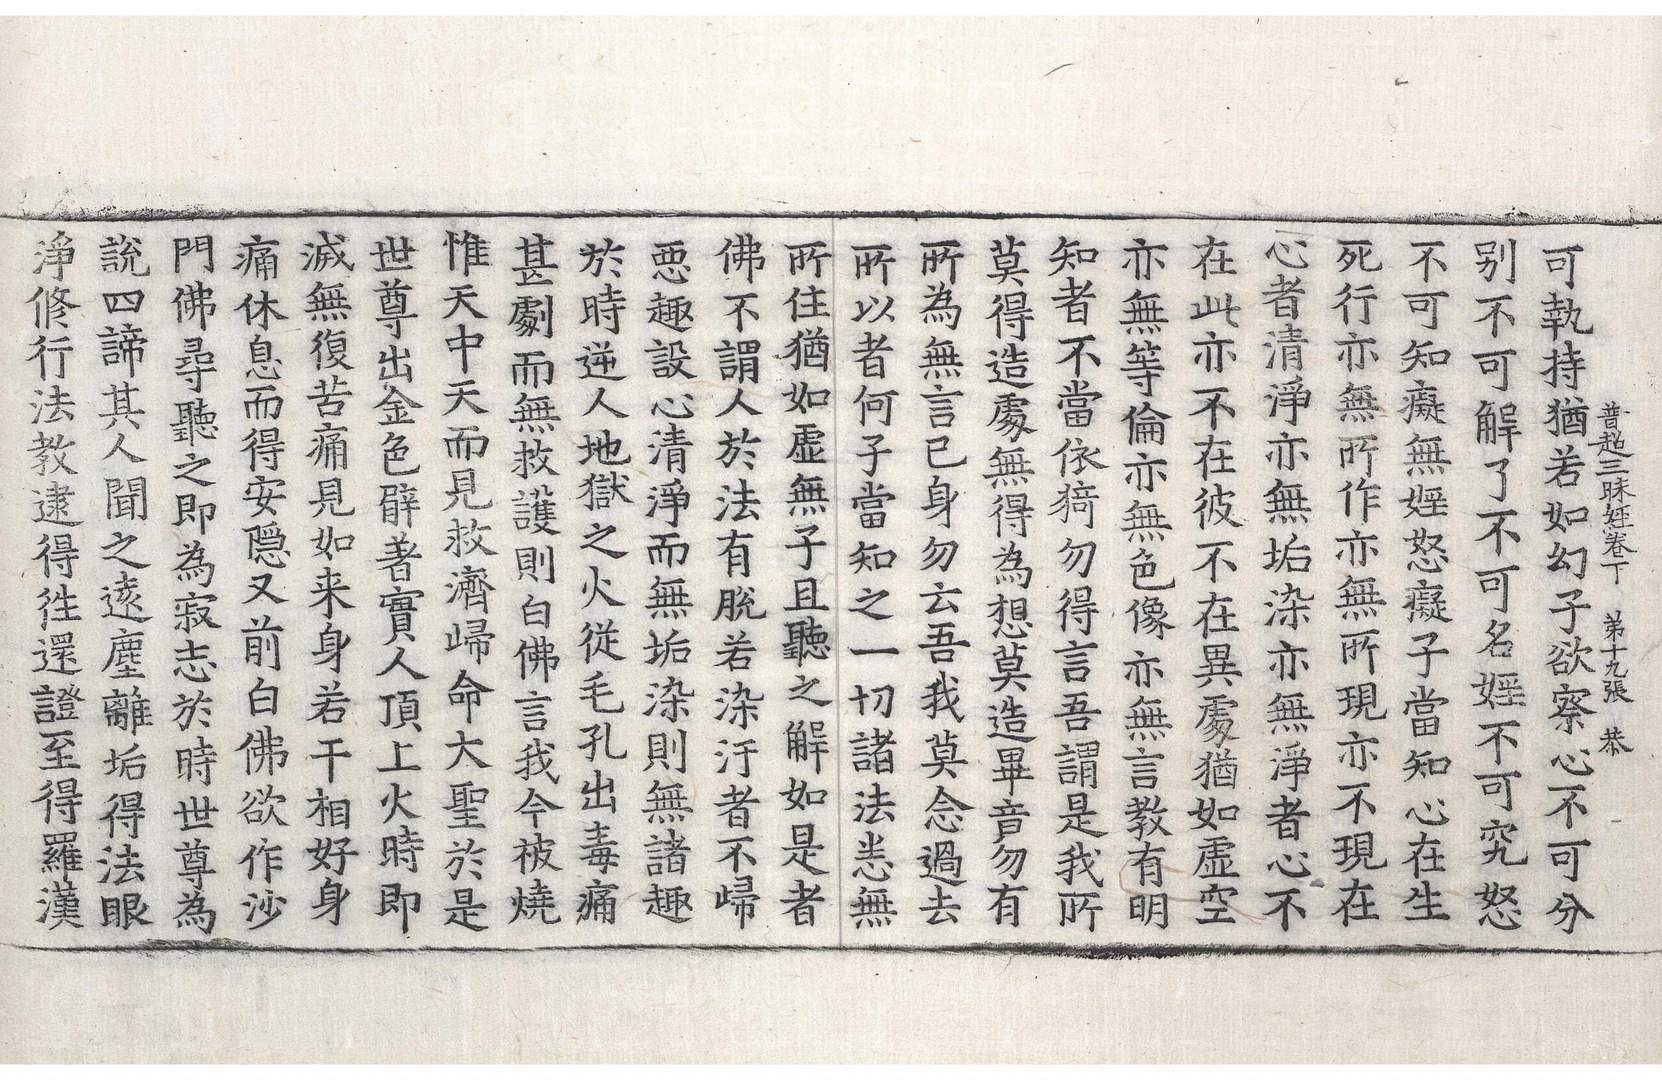 普超三昧経卷下 第十九張 恭
可執持猶若如幻子欲察心不可分
别不可解了不可名婬不可究怒
不可知癡無婬怒癡子當知心在生
死行亦無所作亦無所現亦不現在
心者清淨亦無垢染亦無淨者心不
在此亦不在彼不在異處猶如虛空
亦無等倫亦無色像亦無言教有明
知者不當依猗勿得言吾謂是我所
莫得造處無得為想莫造畢音勿有
所為無言已身勿云吾我莫念過去
所以者何子當知之一切諸法恙無
所住猶如虛無子且聽之解如是者
佛不謂人於法有脫若染汙者不歸
惡趣設心清淨而無垢染則無諸趣
於時逆人地獄之火從毛孔出毒痛
甚劇而無救護則白佛言我今被燒
惟天中天而見救濟歸命大聖於是
世尊出金色臂著實人頂上火時即
滅無復苦痛見如来身若干相好身
痛休息而得安隱又前白佛欲作沙
門佛尋聽之即為寂志於時世尊為
說四諦其人聞之遠塵離垢得法眼
淨修行法教逮得往還證至得羅漢